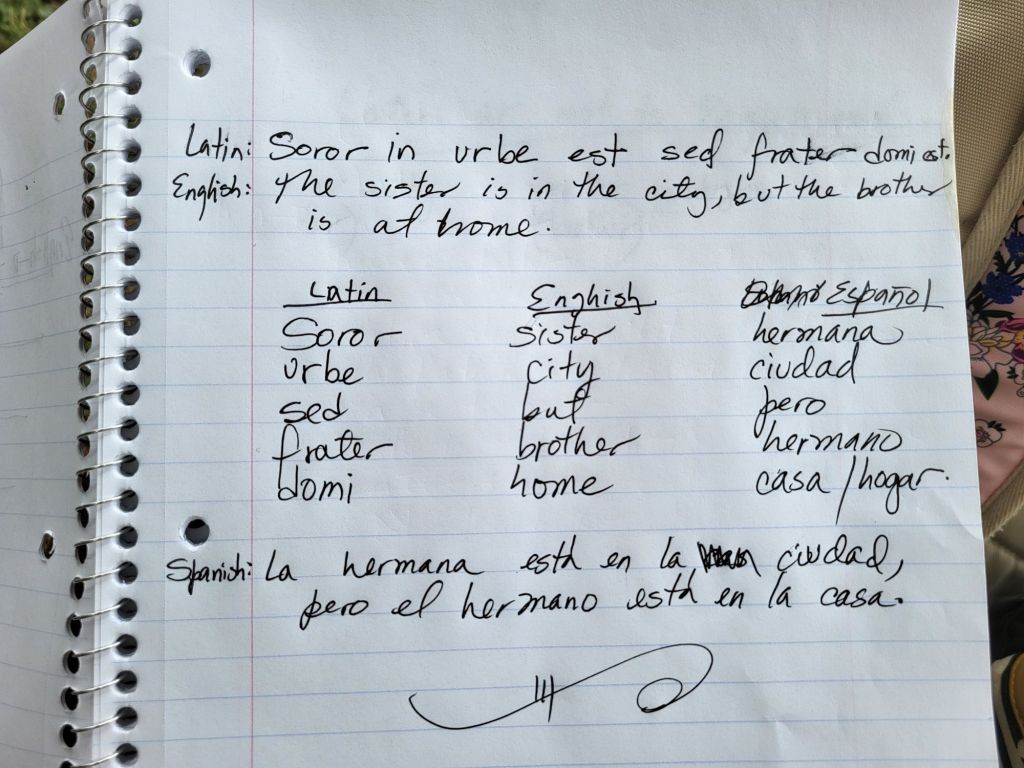 Latin: Soror in urbe est sed frater domi est.
English: The sister is in the city, but the brother
is at home.
Latin English Español
Soror sister hermana
urbe city ciudad
sed but pero
frater brother hermano
domi home casa / hogar.
Spanish: La hermana está en la ciudad,
pero el hermano está en la casa.